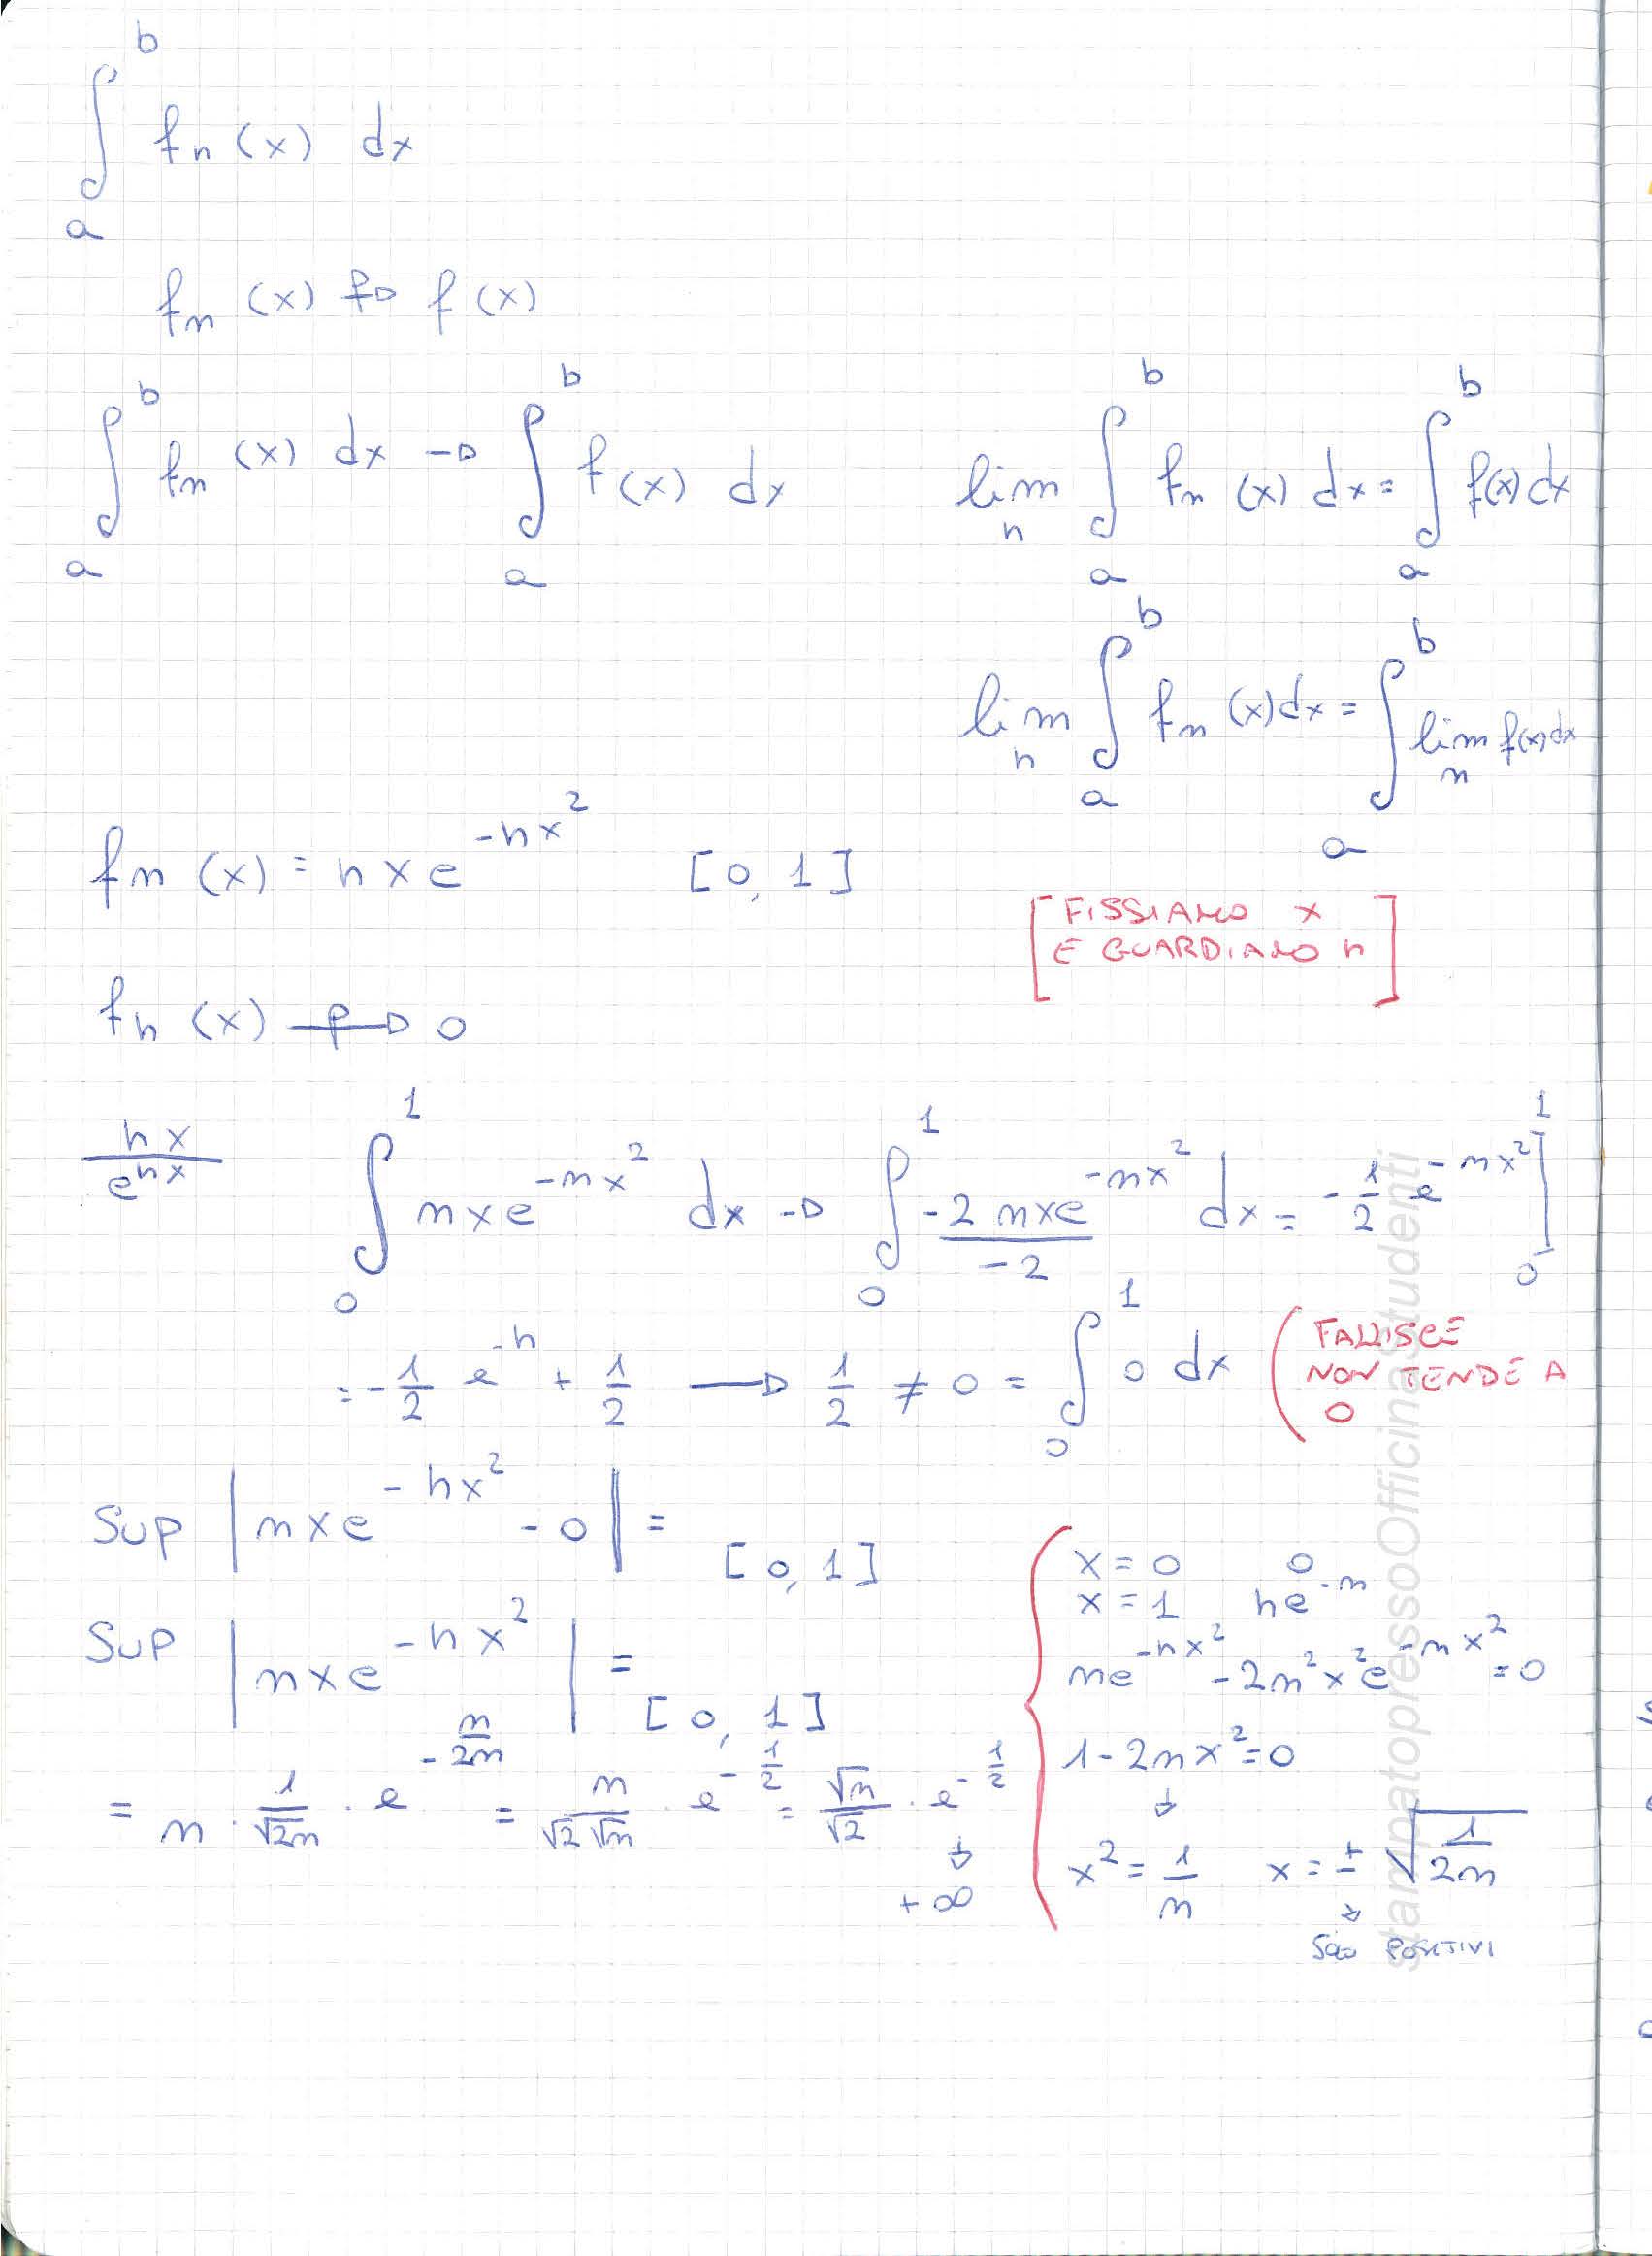 ∫_a^b f_n (x) dx
f_n (x) p→ f (x)
∫_a^b f_n (x) dx → ∫_a^b f(x) dx
lim_n ∫_a^b f_n (x) dx = ∫_a^b f(x) dx
lim_n ∫_a^b f_n (x)dx = ∫_a^b lim_n f(x) dx
f_n (x) = n x e^{-nx^2} [0, 1]
[FISSIAMO x
E GUARDIAMO n]
f_n (x) p→ 0
nx / e^{nx}
∫_0^1 n x e^{-nx^2} dx → ∫_0^1 (-2 n x e^{-nx^2})/(-2) dx = -1/2 e^{-nx^2}]_0^1
= -1/2 e^{-n} + 1/2 → 1/2 ≠ 0 = ∫_0^1 0 dx
(FALLISCE
NON TENDE A
0
Sup |n x e^{-nx^2} - 0| = [0, 1]
Sup |n x e^{-nx^2}| = [0, 1]
= n · 1/√2n · e^{-n/2n} = n/(√2 √n) · e^{-1/2} = √n/√2 · e^{-1/2}
↓
+∞
x = 0 0
x = 1 ne^{-n}
ne^{-nx^2} - 2n^2 x^2 e^{-nx^2} = 0
1 - 2nx^2 = 0
↓
x^2 = 1/n x = ± √(1/2n)
↓
POSITIVI
stampatopressoOfficinaStudenti